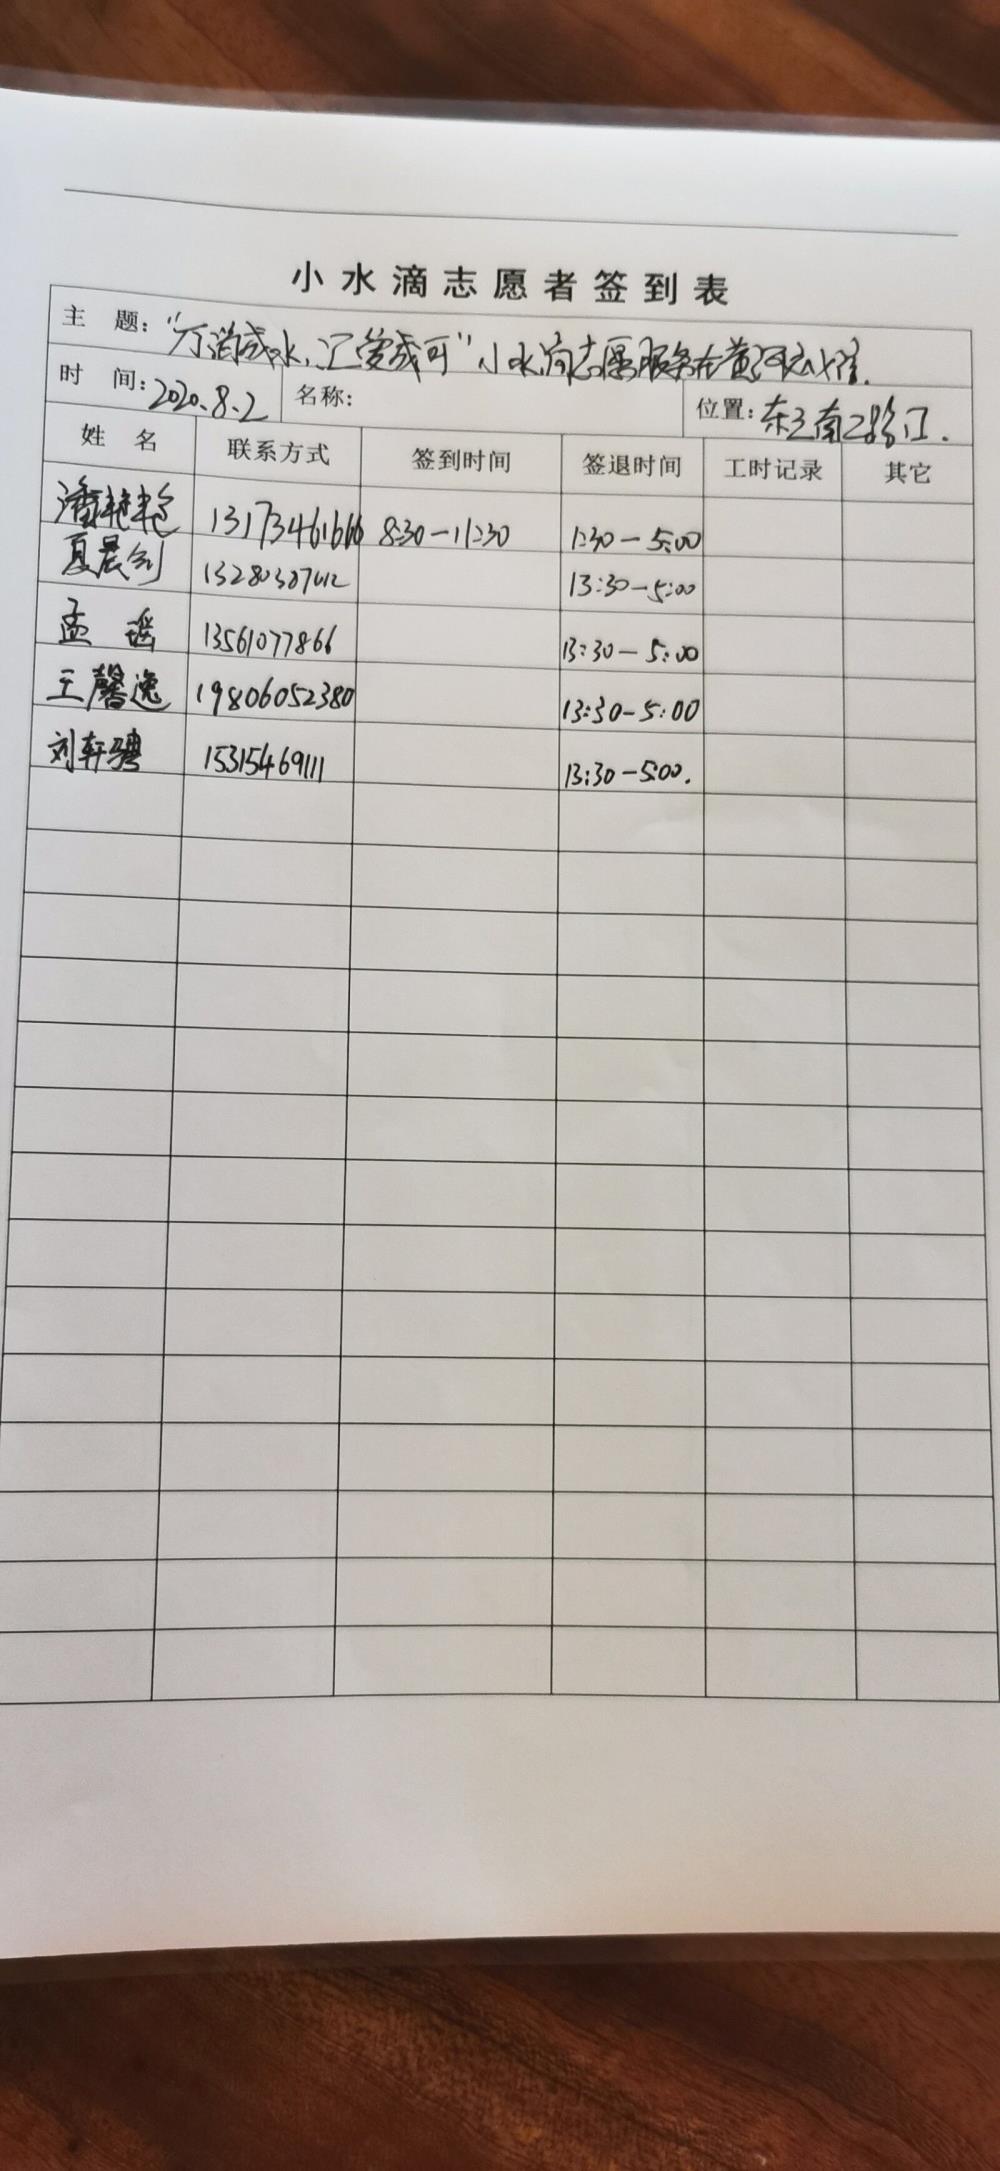 小水滴志愿者签到表
主 题：“万滴成水，汇爱成河”小水滴志愿服务在黄河
时 间：2020.8.2 名称： 位置：东三南二路口.
姓 名 联系方式 签到时间 签退时间 工时记录 其它
潘艳艳 13173461666 8:30-11:30 1:30-5:00
夏晨 13:30-5:00
孟 瑶 13561077866 13:30-5:00
王馨逸 19806052380 13:30-5:00
刘轩骋 15315469111 13:30-5:00.